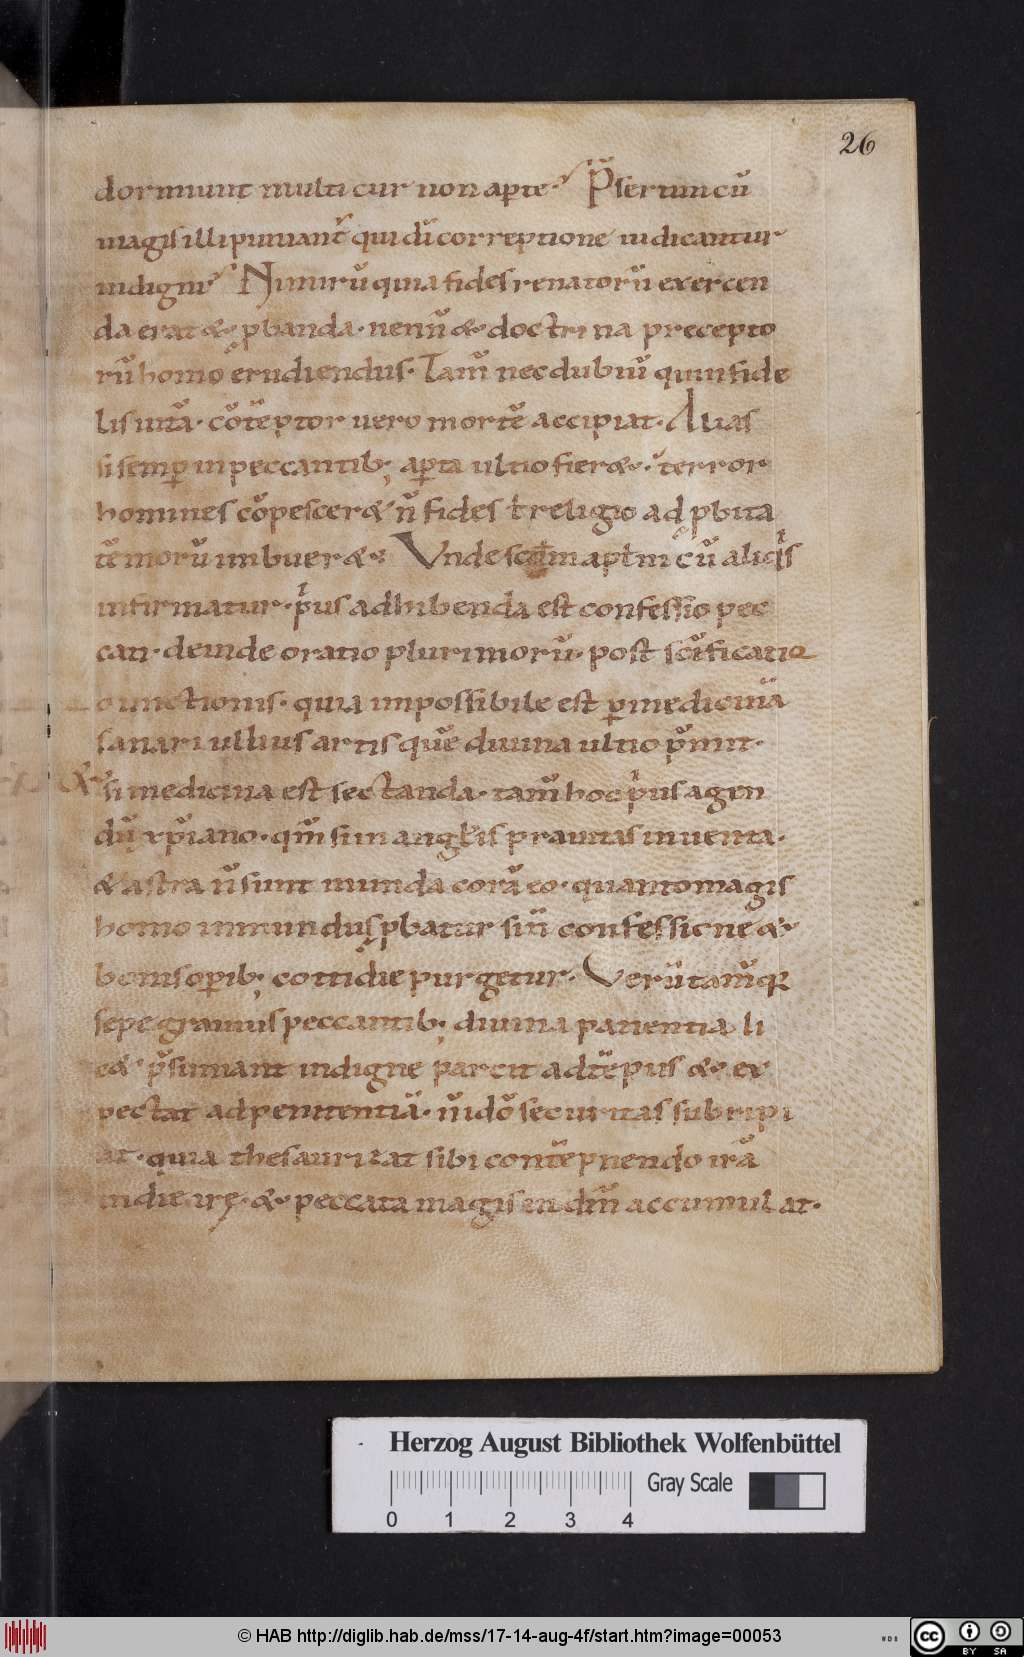 26
dormiunt multi cur non aperte· P̃sertim cũ
magis illi puniant᷑ qui dũ correptione iudicantur
indigni· Nimirũ quia fides renatorũ exercen
da erat & p̱banda· ne nũ & doctrina precepto
rũ homo erudiendus· Tam̃ nec dubiũ quin fide
lis uitã· cõtẽptor uero mortẽ accipiat· Alias
si semp̱ in peccantib; ap̱ta ultio fier&· terror
homines cõpescer& ñ fides t̵ religio ad p̱bita
tẽ morũ imbuer&· Vnde scd̃m apl̃m cũ aliq̓s
infirmatur· p̓us adhibenda est confessio pec
cati· deinde oratio plurimorũ· post sc̃ificatio
o unctionis· quia impossibile est p̱ medicinã
sanari ullius artis quẽ diuina ultio p̃mit·
& si medicina est sectanda· tam̃ hoc p̓us agen
dũ xp̃iano· qm̃ si in angl̃is prauitas inuenta·
& astra ñ sunt munda corã eo· quanto magis
homo inmundus p̱batur si ñ confessione &
bonis op̱ib; cottidie purgetur· Verũtam̃ q̃
sepe grauius peccantib; diuina patientia li
c& p̃sumant indigne parcit ad tẽpus & ex
pectat ad penitentiã· ñ idõ securitas subripi
at· quia thesaurizat sibi contẽpnendo irã
in die irę· & peccata magis emd̃m accumulat·
Herzog August Bibliothek Wolfenbüttel
Gray Scale
0 1 2 3 4
© HAB http://diglib.hab.de/mss/17-14-aug-4f/start.htm?image=00053
WDB
cc BY SA